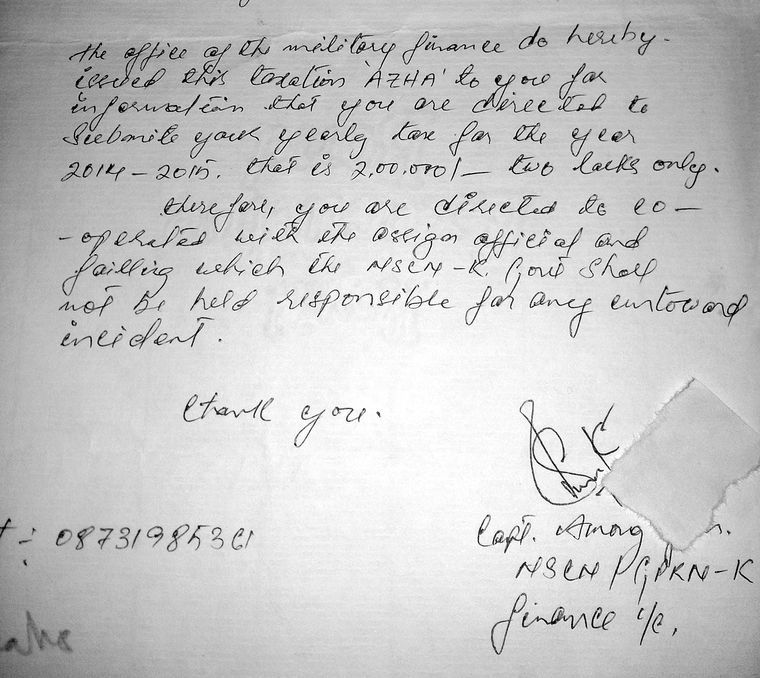 the office of the military finance do hereby.
issued this taxation 'AZHA' to you for
information that you are directed to
Submite your yearly tax for the year
2014-2015. that is 2,00.000/- two lacks only.
therefore, you are directed to co-
-operated with the assign official and
failling which the NSCN-K. Govt Shall
not be held responsible for any untoward
incident.
thank you.
:- 08731985361
Capt. Among
NSCN/GPRN-K
finance i/c.